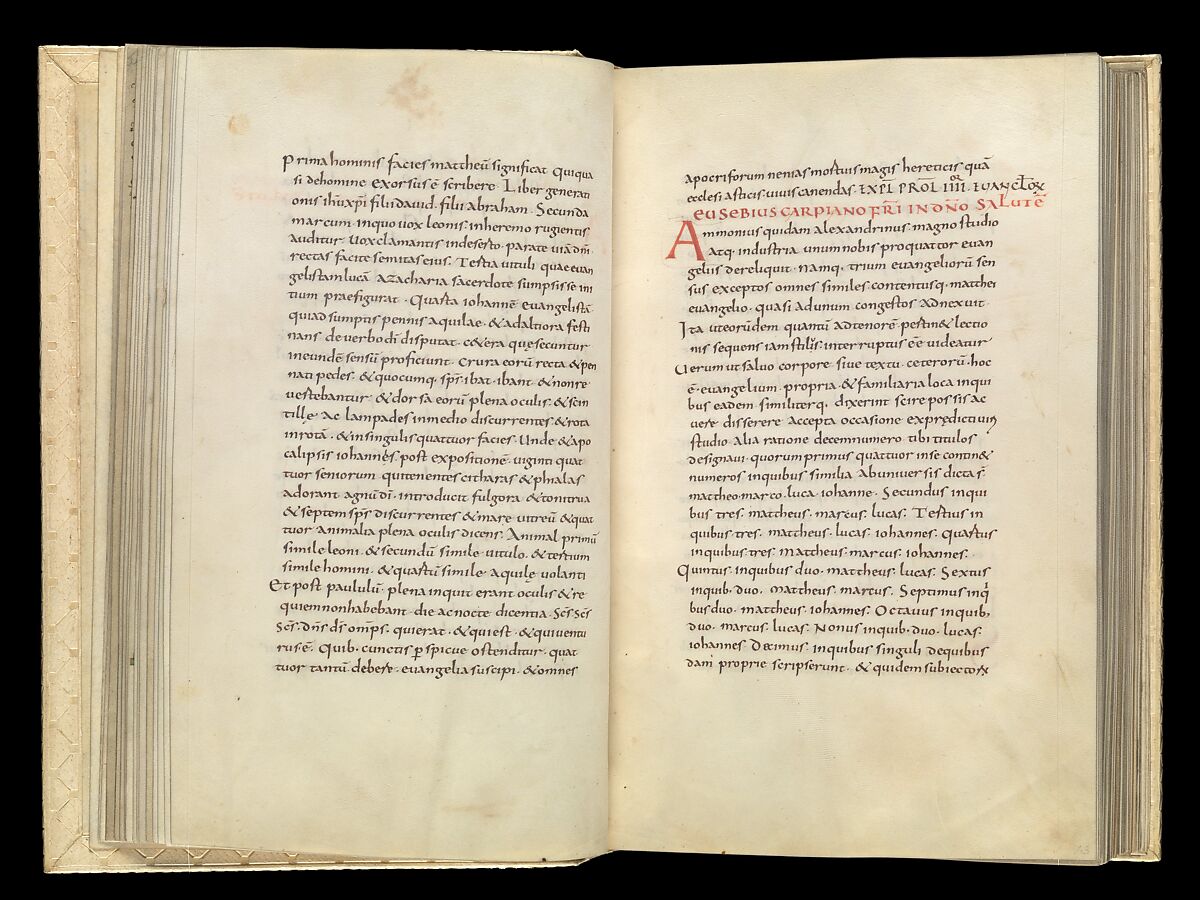 Prima hominis facies mattheū significat Quiqua
si dehomine exorsus ē scribere Liber generati
onis ihu xpi filii david. filii abraham. Secunda
marcum. inquo vox leonis. inheremo rugientis
auditur Vox clamantis indeserto. parate viā dn̄i
rectas facite semitas eius. Tertia vituli quae evan
gelistam lucā azacharia sacerdote sumpsisse ini
tium praefigurat. Quarta iohannē evangelistā
qui adsumptis pennis aquilae. & adaltiora festi
nans de verbo dī disputat. c&era quę secuntur
ineundē sensū proficiunt. Crura eorū recta & pen
nati pedes. & quocumq. sps ibat. ibant. & nonre
vertebantur & dorsa eorū plena oculis. & scin
tillę ac lampades inmedio discurrentes. & rota
inrotā. & insingulis quattuor facies. Unde & apo
calipsis iohannęs. post expositionē viginti quat
tuor seniorum qui tenentes citharas & phialas
adorant agnū dī. introducit fulgora. & tonitrua
& septem sps discurrentes & mare vitreū & quat
tuor animalia plena oculis dicens. Animal primū
simile leoni. & secundū simile vitulo. & tertium
simile homini. & quartū simile aquilę volanti
Et post paululū. plena inquit erant oculis & re
quiem non habebant. die ac nocte dicentia. Scs. Scs.
Scs. dns ds omps. qui erat. & qui est. & qui ventu
rus ē. Quib. cunctis pspicue ostenditur. quat
tuor tantū debere. evangelia suscipi. & omnes
apocriforum nenias mortuis magis hereticis quā
ecclesiasticis vivis canendas. EXPL PROL IIII EVANGLOR
EUSEBIUS CARPIANO FRI IN DNO SALUTĒ
Ammonius quidam alexandrinus. magno studio
atq. industria. unum nobis pro quattor evan
geliis dereliquit. Namq. trium evangeliorū sen
sus exceptos omnes similes. contentusq. matthei
evangelio. quasi ad unum congestos adnexuit.
Ita ut eorūdem quantū ad tenorē pertin& lectio
nis sequens iam stilus interruptus eē videatur
Uerum ut salvo corpore sive textu. ceterorū. hoc
ē. evangelium. propria. & familiaria loca inqui
bus eadem similiterq. dixerint scire possis ac
vere disserere accepta occasione ex predicti viri
studio alia ratione decem numero tibi titulos
designavi. quorum primus quattuor inse contin&
numeros inquibus similia. ab universis dicta s.
mattheo. marco. luca. iohanne. Secundus inqui
bus tres. mattheus. marcus. lucas. Tertius in
quibus. tres. mattheus. lucas. iohannes. Quartus
inquibus. tres. mattheus. marcus. iohannes.
Quintus. inquibus duo. mattheus. lucas. Sextus
inquib. duo. mattheus. marcus. Septimus inq
bus duo. mattheus. iohannes. Octavus inquib.
duo. marcus. lucas. Nonus inquib. duo. lucas.
iohannes. Decimus. inquibus singuli de quibus
dam proprie scripserunt. & quidem subiector